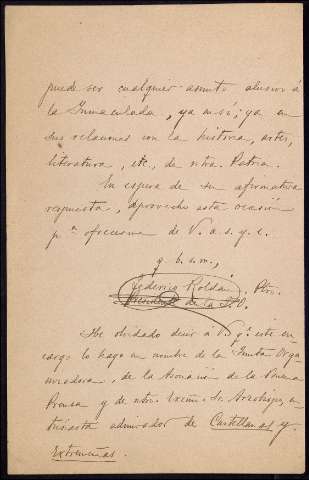 puede ser cualquier asunto alusivo á
la Inmaculada, ya en sí; ya en
sus relaciones con la historia, artes,
literatura, etc, de ntra. Patria.
En espera de su afirmativa
respuesta, aprovecho esta ocasión
pª ofrecerme de V. a. s. y c.
q. b. s. m.,
Federico Roldán, Pbro.
Presidente de la
He olvidado decir á V. q. este en-
cargo lo hago en nombre de la Junta Orga-
nizadora, de la Asociación de la Buena
Prensa y de ntro. Excmo. Sr. Arzobispo, en-
tusiasta admirador de Castellanas y
Extremeñas.